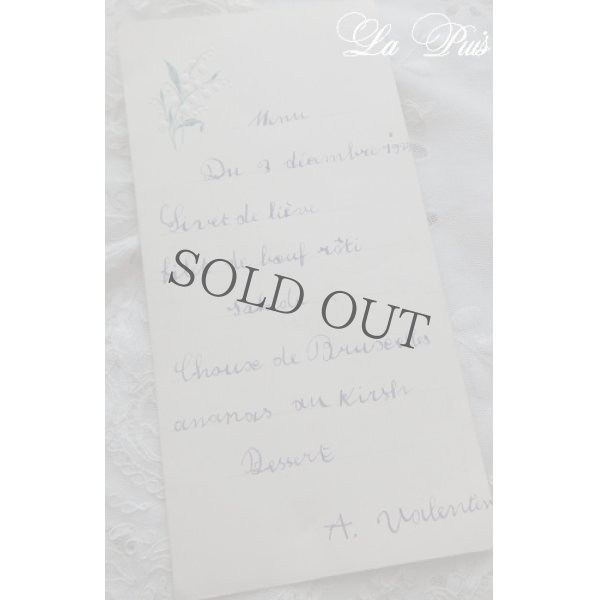 La Puis
Menu
Du 3 décembre
Sivet de lièvre
de bœuf rôti
SOLD OUT
Choux de Bruxelles
ananas au Kirsh
Dessert
A. Valentin